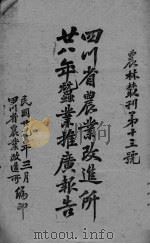 農林叢刊第十三號
四川省農業改進所
廿八年蠶業推廣報告
民國廿九年三月
四川省農業改進所編印